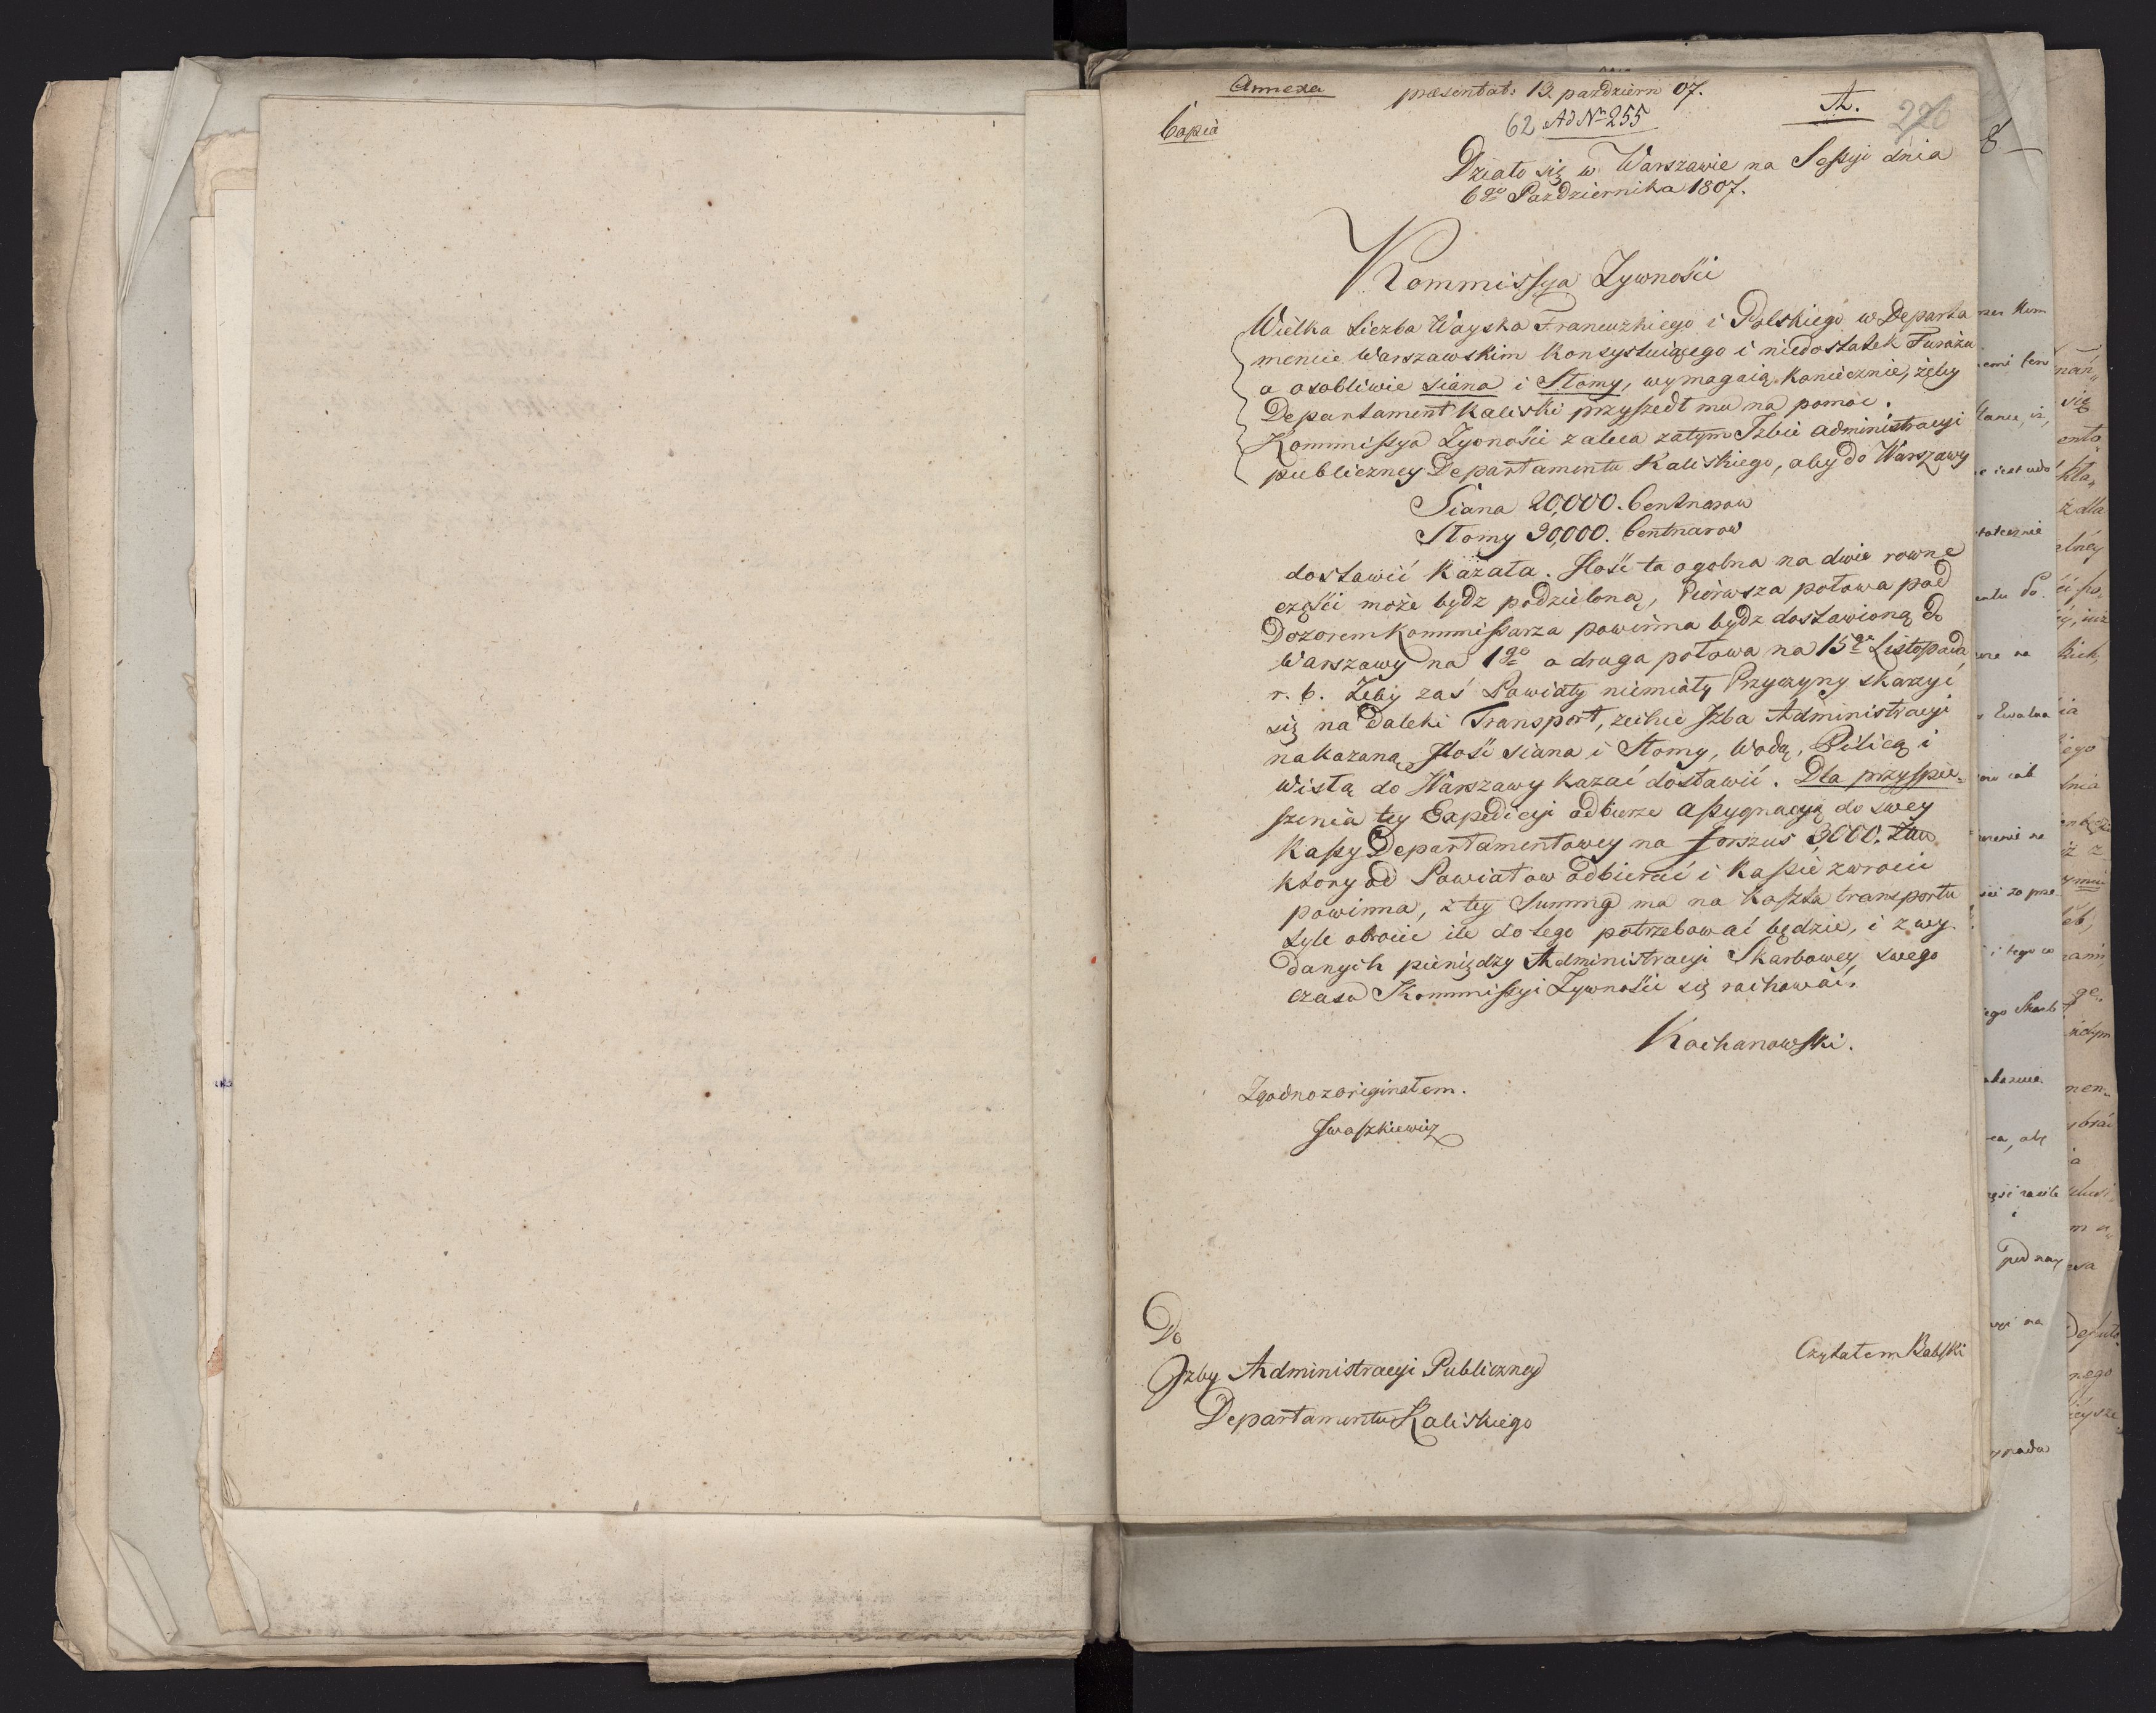 Annexa
præsentat: 13 październ 07.
A.
276
Copia
62 Ad Nr 255
Działo się w Warszawie na Seßyi dnia
6go Pazdziernika 1807.
Kommissya Zywności
Wielka Liczba Woyska Francuzkiego i Polskiego w Departa
mencie Warszawskim konsystuiącego i niedostatek Furażu
a osobliwie siana i Słomy, wymagaią koniecznie, żeby
Departament Kaliski przyszedł mu na pomoc.
Kommißya Zywności zaleca zatym Izbie Administracyi
publiczney Departamentu Kaliskiego, aby do Warszawy
Siana 20,000. Centnarow
Słomy 30,000. Centnarow
dostawić kazała. Ilość ta ogolna na dwie rowne
części może bydz podzieloną, Pierwsza połowa pod
Dozorem Kommißarza powinna bydz dostawioną do
Warszawy na 1go a druga połowa na 15go Listopada
r. b. Żeby zaś Powiaty niemiały Przyczyny skarzyć
się na daleki Transport, zechce Izba Administracyi
nakazaną Ilość siana i Słomy, Wodą, Pilicą i
Wisłą do Warszawy kazać dostawić. Dla przyspie=
szenia tey Expedicyi odbierze Aßygnacyą do swey
Kaßy Departamentowey na forszus 3,000.
ktory od Powiatow odbierać i Kaßie zwrocić
powinna, z tey Summy ma na koszta transportu
tyle obrocić ile do tego potrzebować będzie, i z wy
danych pieniędzy Administracyi Skarbowey swego
czasu Kommißyi Zywności się rachować.
Kochanowski.
Zgodno z originałem.
Iwaszkiewicz
Do
Izby Administracyi Publiczney
Departamentu Kaliskiego
Czytałem Babski